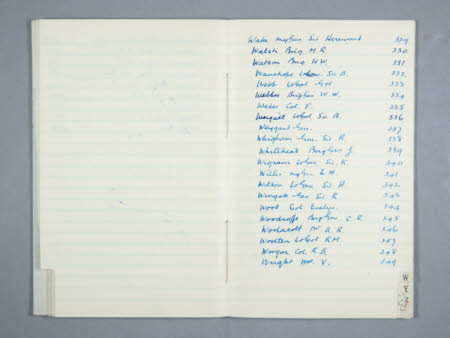 Wake MajGen Sir Hereward 329
Walsh Brig. M.R. 330
Watson Brig H.W. 331
Wauchope LtGen. Sir A. 332
Webb LtCol. G.H 333
Webber BrigGen W.W. 334
Weber Col. F. 335
LtCol Sir A. 336
Weygand Gen. 337
Whigham Gen. Sir R. 338
Whitehead BrigGen J. 339
Wigram LtGen. Sir. K. 340
MajGen E.H. 341
Wilson LtGen Sir H. 342
Wingate Gen Sir R. 343
Wood Col Evelyn. 344
Woodroffe BrigGen. C.R. 345
Woolacott Mr A.R. 346
Wootten LtCol R.M. 347
Worgan Col R.B. 348
Wright Mr. V. 349
W.
Y.
Z